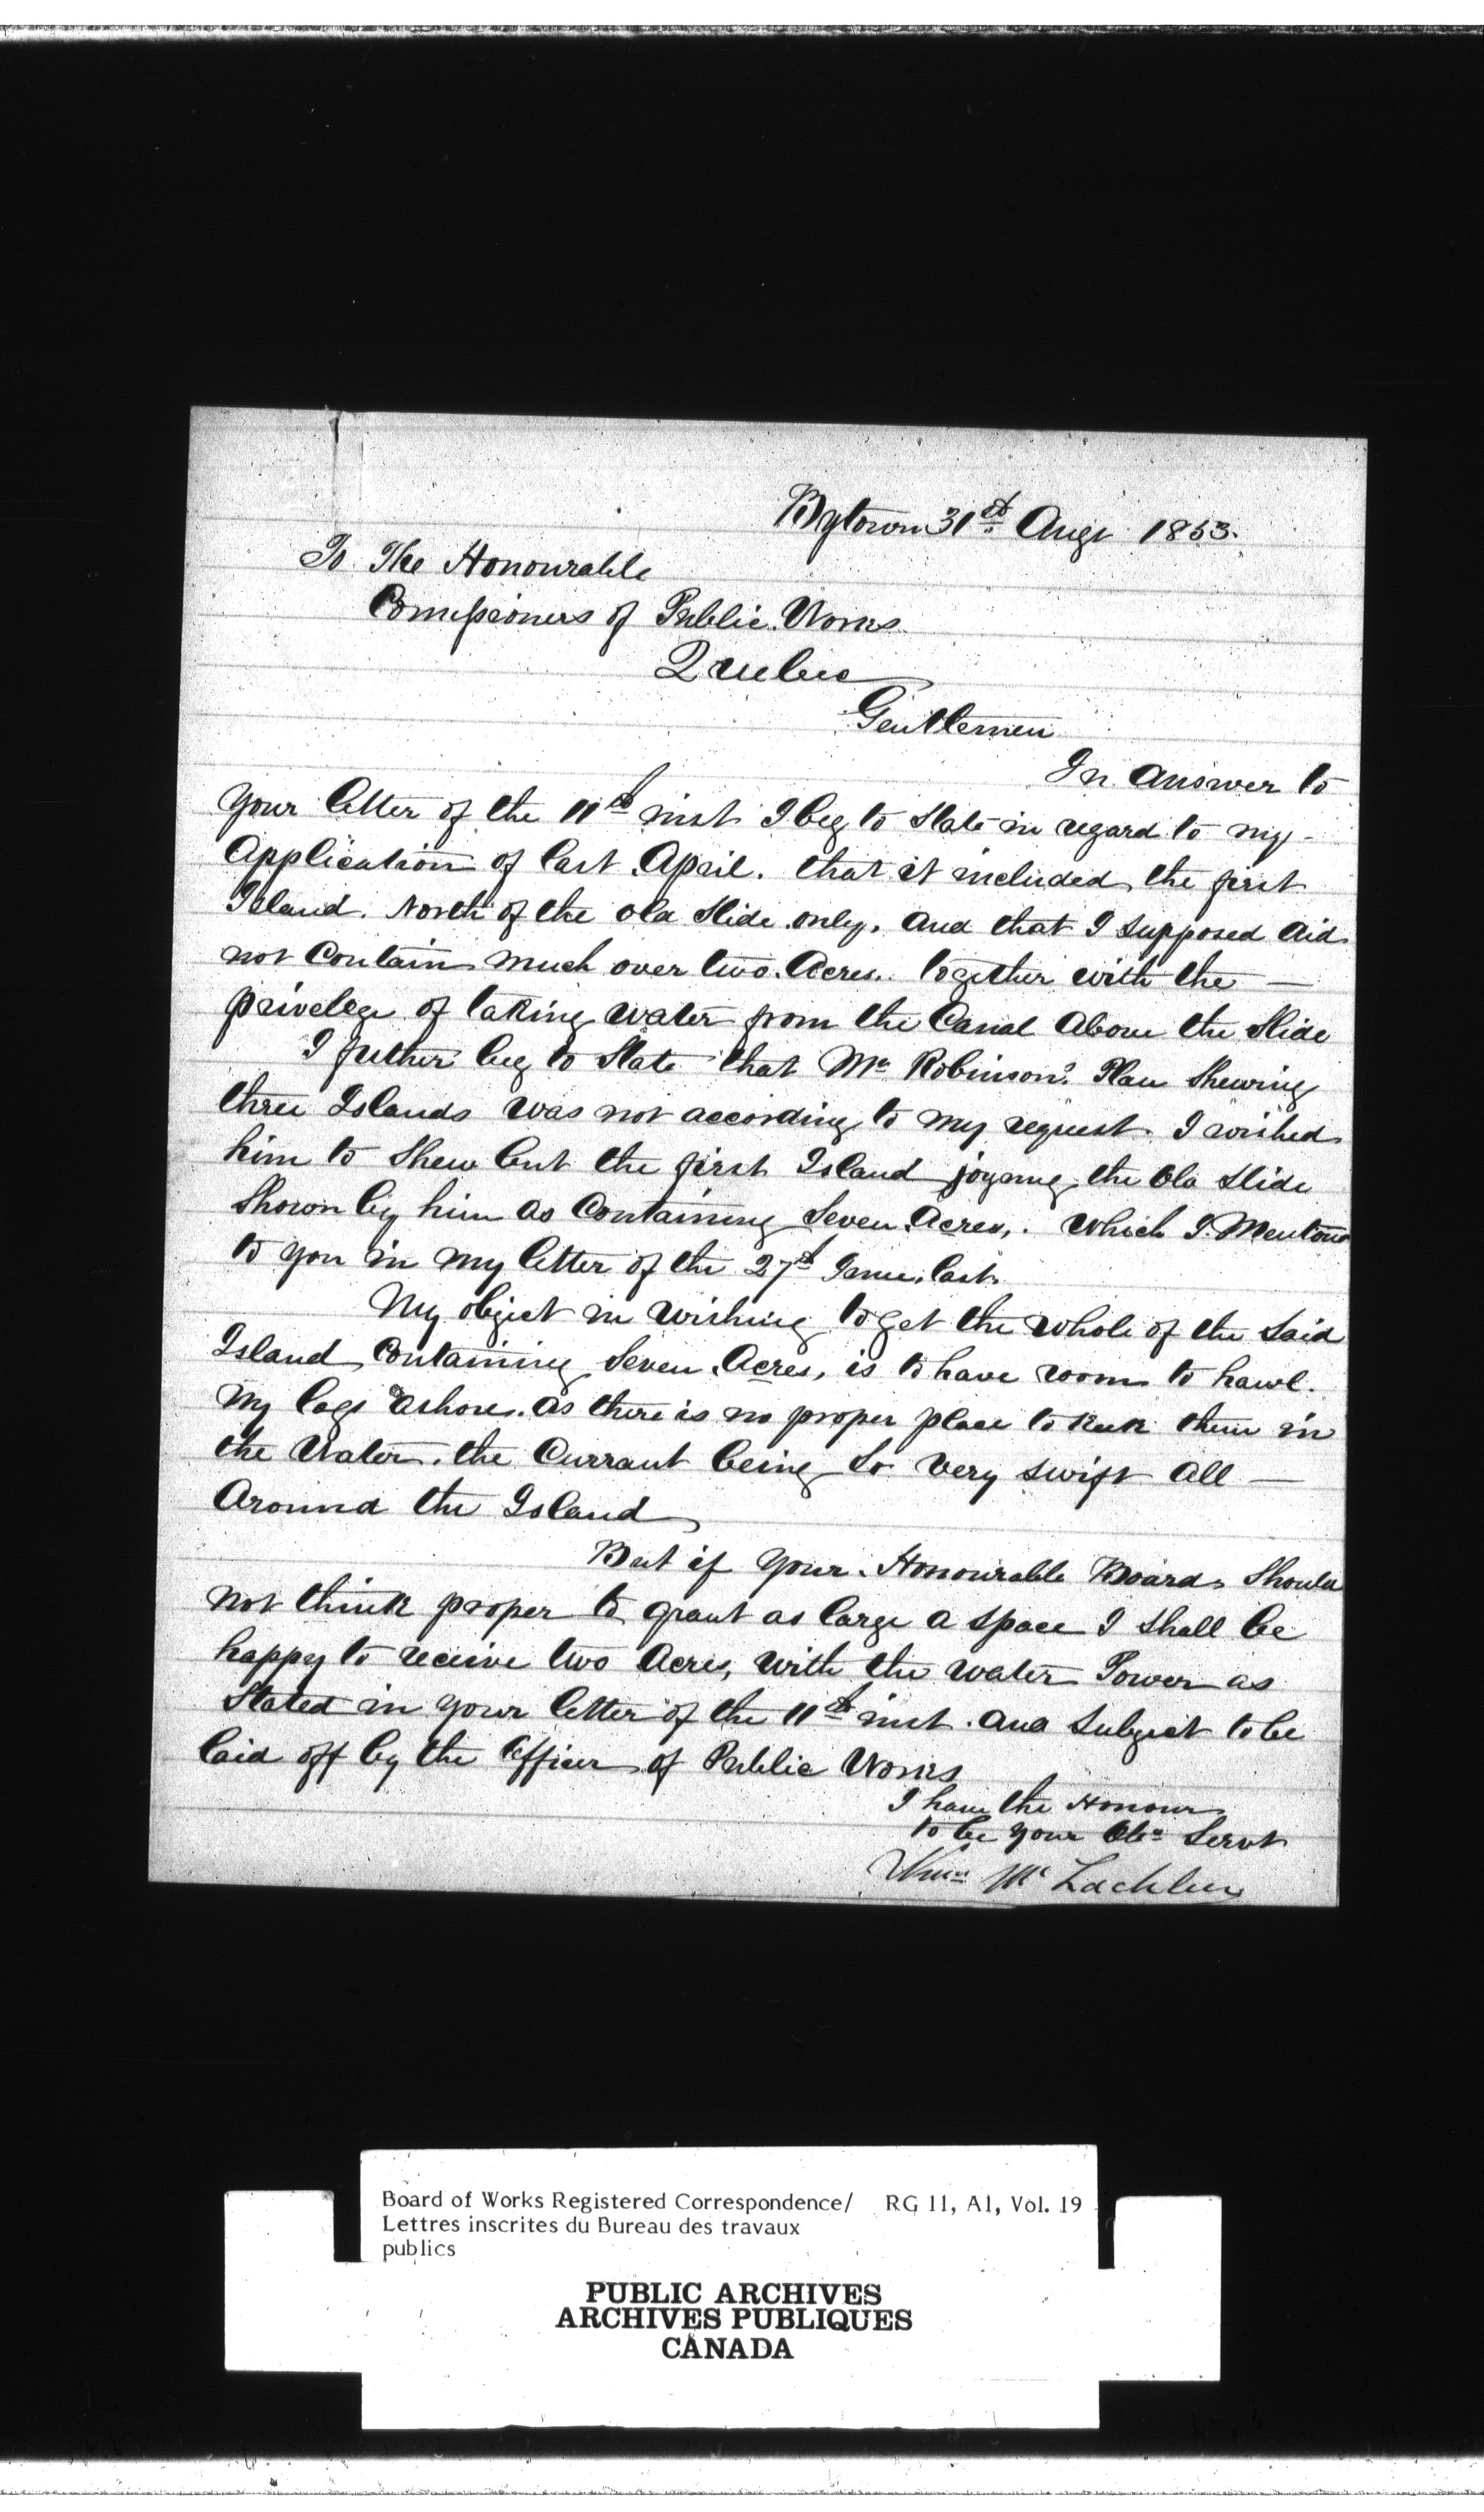 Bytown 31st Augt 1853.
To The Honourable
Comissioners of Public Works
Quebec
Gentlemen
In Answer to
your letter of the 11th inst I beg to State in regard to my
Application of last April. that it included the first
Island. North of the old Slide only, and that I supposed did
not Contain much over two Acres. together with the —
privelege of taking water from the Canal Above the Slide
I futher beg to State that Mr Robinsons Plan Shewing
three Islands was not according to my request. I wished
him to Shew but the first Island joyning the Old Slide
Shown by him as Containing Seven Acres, which I Mentond
to you in my letter of the 27th June last.
My object in wishing to get the whole of the Said
Island Containing Seven Acres, is to have room to hawl.
My logs ashore. as there is no proper place to keek them in
the Water. the Currant being So very swift all —
Around the Island
But if your Honourable Board Should
not think proper to grant as large a space I shall be
happy to receive two Acres, with the water Power as
Stated in your letter of the 11th inst. and Subject to be
laid off by the Officer of Public Works
I have the Honour
to be your Obt Servt
Wm Mc Lachlin
Board of Works Registered Correspondence/ RG 11, A1, Vol. 19
Lettres inscrites du Bureau des travaux
publics
PUBLIC ARCHIVES
ARCHIVES PUBLIQUES
CANADA